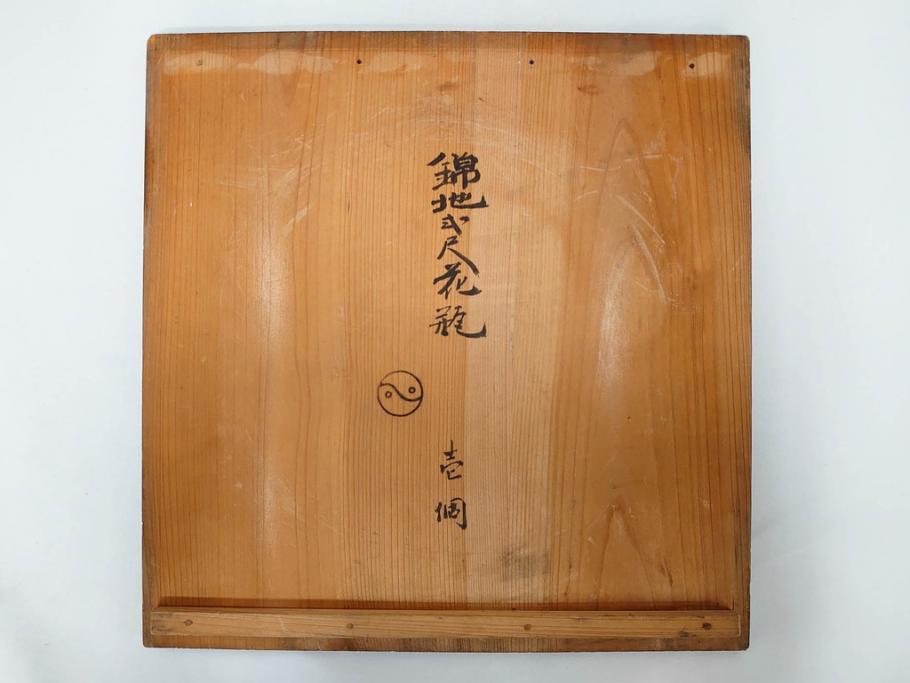 錦地弍尺花瓶
壱個